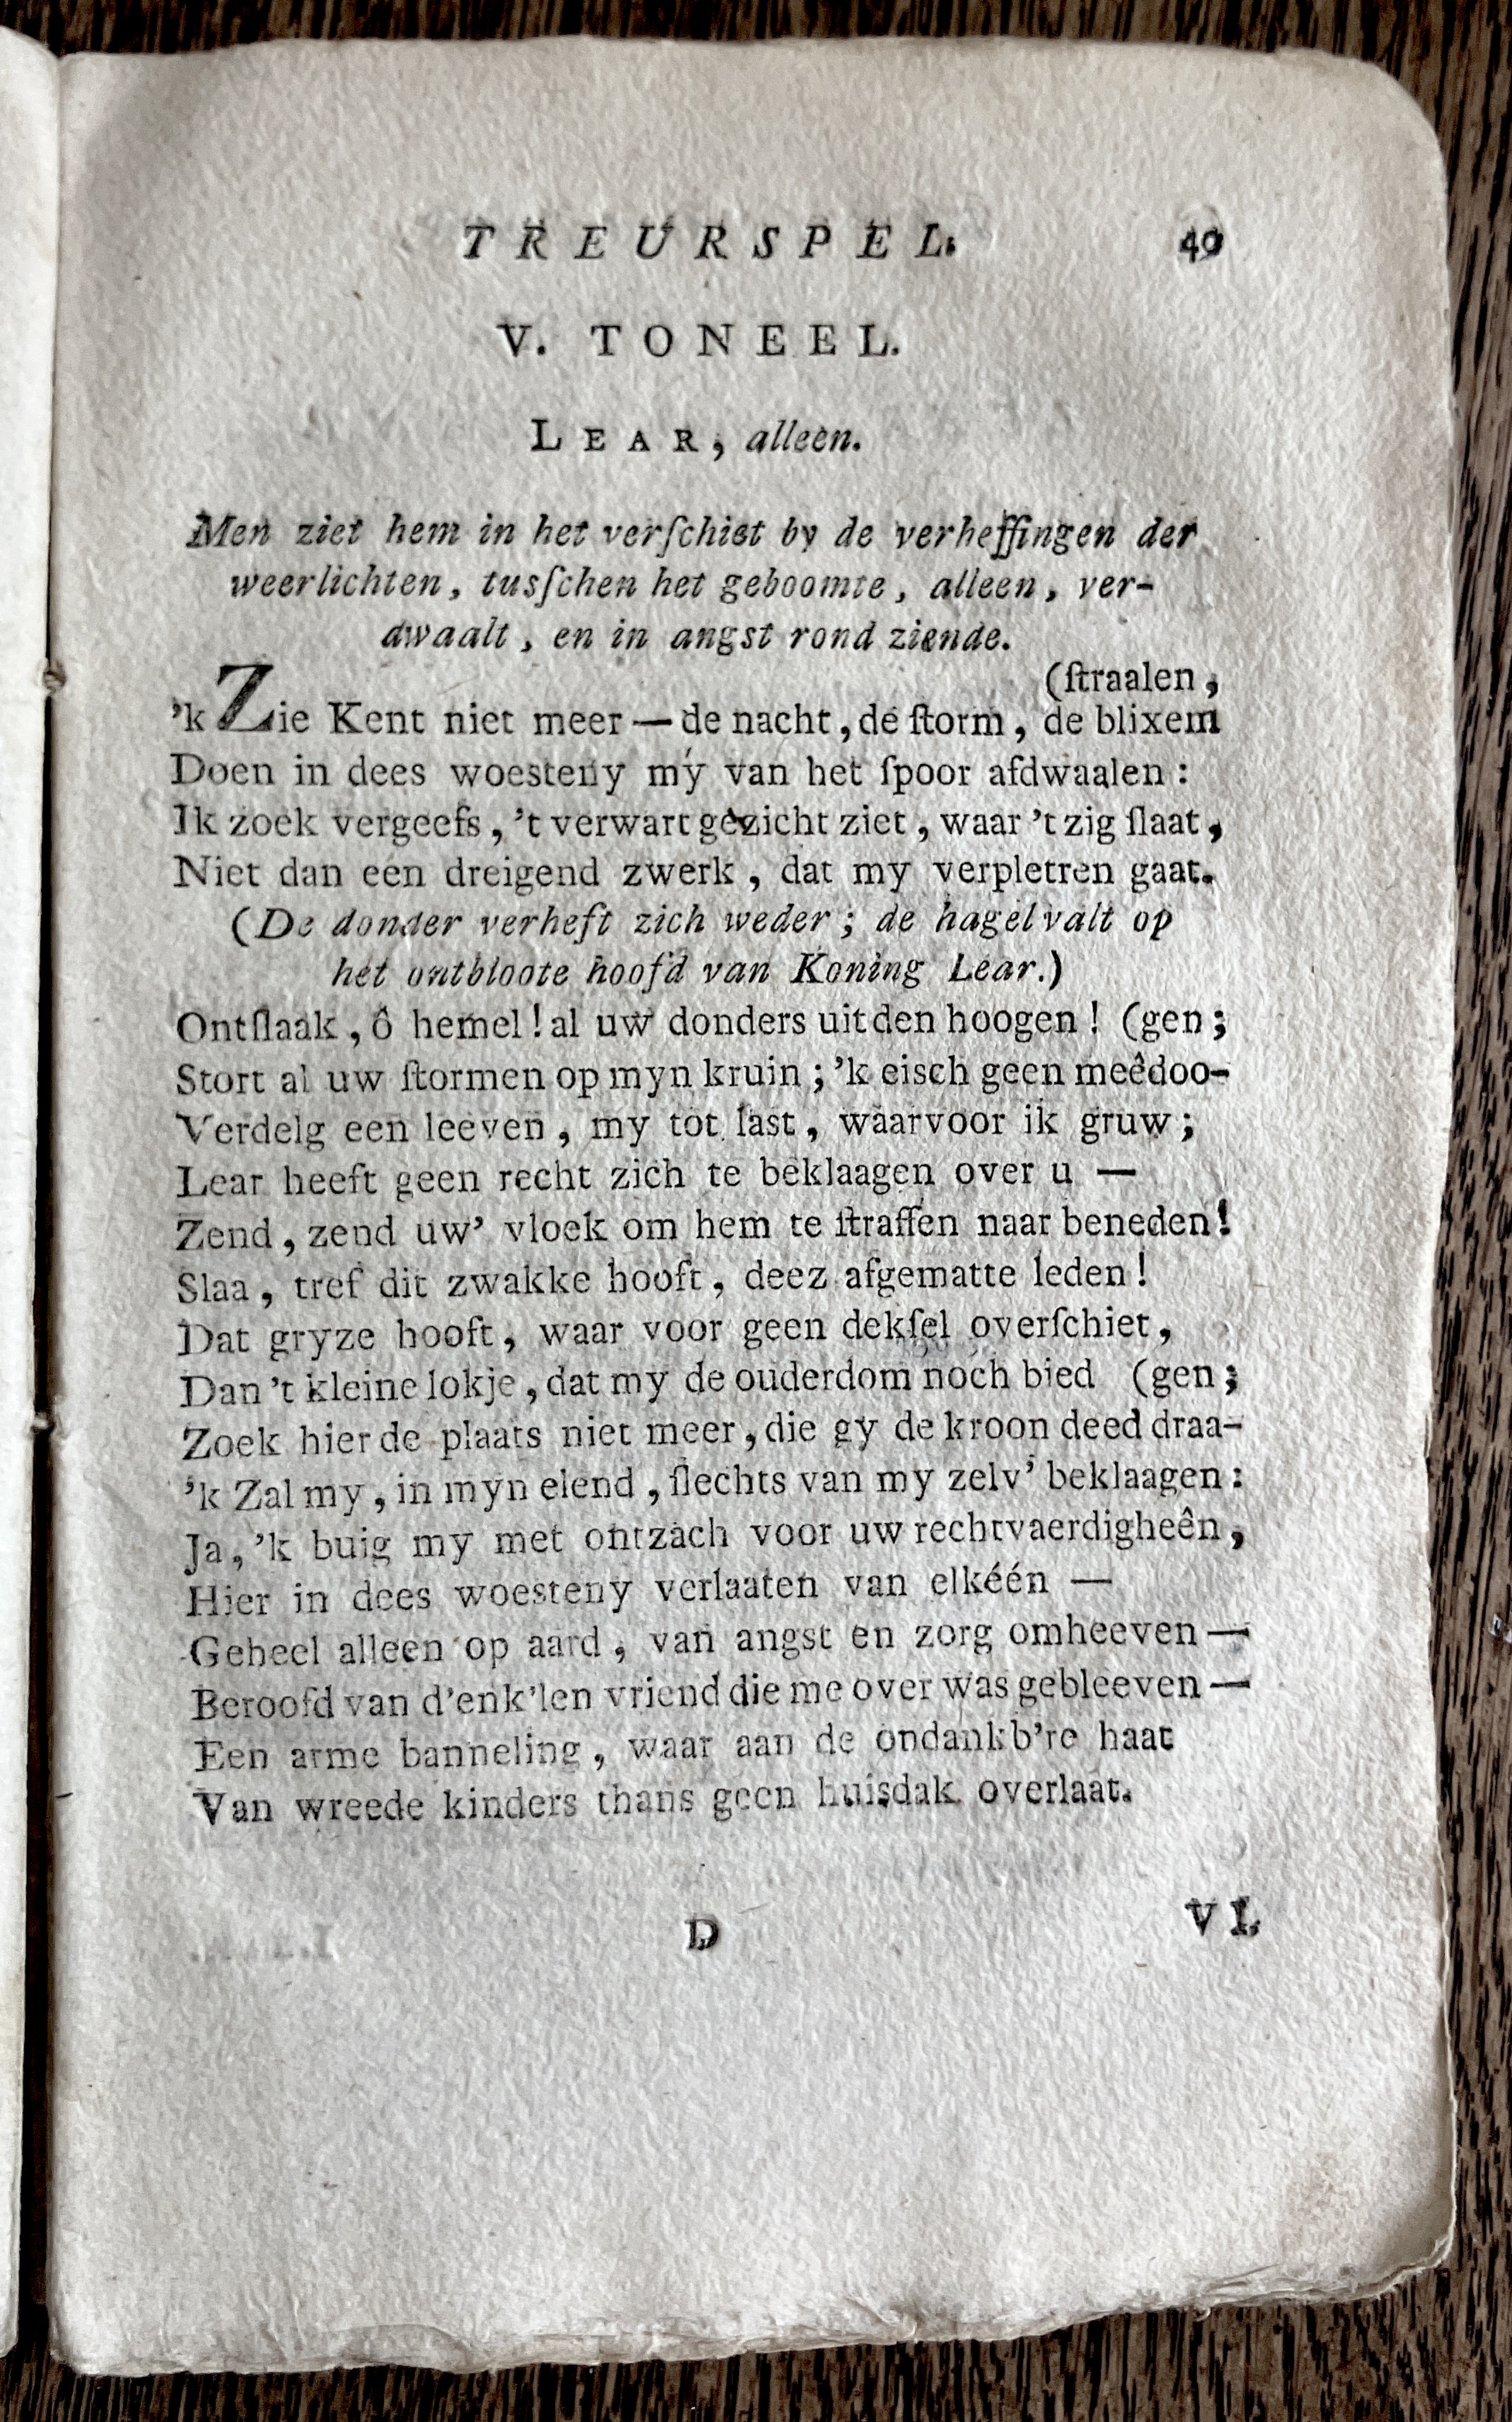 TREURSPEL. 49
V. TONEEL.
LEAR, alleen.
Men ziet hem in het verſchiet by de verheffingen der
weerlichten, tusſchen het geboomte, alleen, ver-
dwaalt, en in angst rond ziende.
(ſtraalen,
'k Zie Kent niet meer — de nacht, de ſtorm, de blixem
Doen in dees woesteny my van het ſpoor afdwaalen:
Ik zoek vergeefs, 't verwart gezicht ziet, waar 't zig ſlaat,
Niet dan een dreigend zwerk, dat my verpletren gaat.
(De donder verheft zich weder; de hagel valt op
het ontbloote hoofd van Koning Lear.)
Ontſlaak, ô hemel! al uw donders uit den hoogen! (gen;
Stort al uw ſtormen op myn kruin; 'k eisch geen meêdoo-
Verdelg een leeven, my tot last, waarvoor ik gruw;
Lear heeft geen recht zich te beklaagen over u —
Zend, zend uw' vloek om hem te ſtraffen naar beneden!
Slaa, tref dit zwakke hooft, deez afgematte leden!
Dat gryze hooft, waar voor geen dekſel overſchiet,
Dan 't kleine lokje, dat my de ouderdom noch bied (gen;
Zoek hier de plaats niet meer, die gy de kroon deed draa-
'k Zal my, in myn elend, ſlechts van my zelv' beklaagen:
Ja, 'k buig my met ontzach voor uw rechtvaerdigheên,
Hier in dees woesteny verlaaten van elkéén —
Geheel alleen op aard, van angst en zorg omheeven —
Beroofd van d'enk'len vriend die me over was gebleeven —
Een arme banneling, waar aan de ondankb're haat
Van wreede kinders thans geen huisdak overlaat.
D VI.